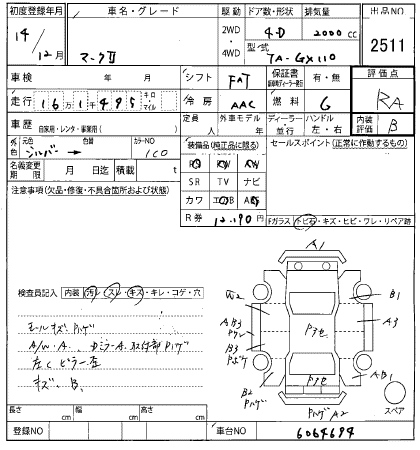 初度登録年月 車名・グレード 駆動 ドア数・形状 排気量 出品NO
14 / 12月 マークⅡ 2WD・4WD 4-D 2000cc 2511
型/式 TA-GX110
車検 年 月 シフト FAT 保証書 有・無 評価点
走行 16万1千495 キロ・マイル 冷房 AAC 燃料 G RA
車歴 自家用・レンタ・事業用( ) 定員 人 外車モデル 年 ディーラー・並行 ハンドル 左・右 内装評価 B
外色 元色 シルバー→ 色替 カラーNO 1C0 装備品(純正品に限る) セールスポイント(正常に作動するもの)
名義変更期限 月 日迄 積載 t
SR TV ナビ
注意事項(欠品・修復・不具合箇所および状態)
カワ
R券 12,190円
Fガラス トビ石・キズ・ヒビ・ワレ・リペア跡
A1
検査員記入 内装 汚レ・スレ・キズ・キレ・コゲ・穴
W2 B1
モールキズ, ハゲ AB3 Pアセ A3
A/W・A. DミラーA. 取付部Pハゲ B3
左Cピラー左 Pアセ AB1
キズ、B, B2 Pハゲ
PハゲA2 スペア
長さ cm 幅 cm 高さ cm
登録NO 車台NO 6064694